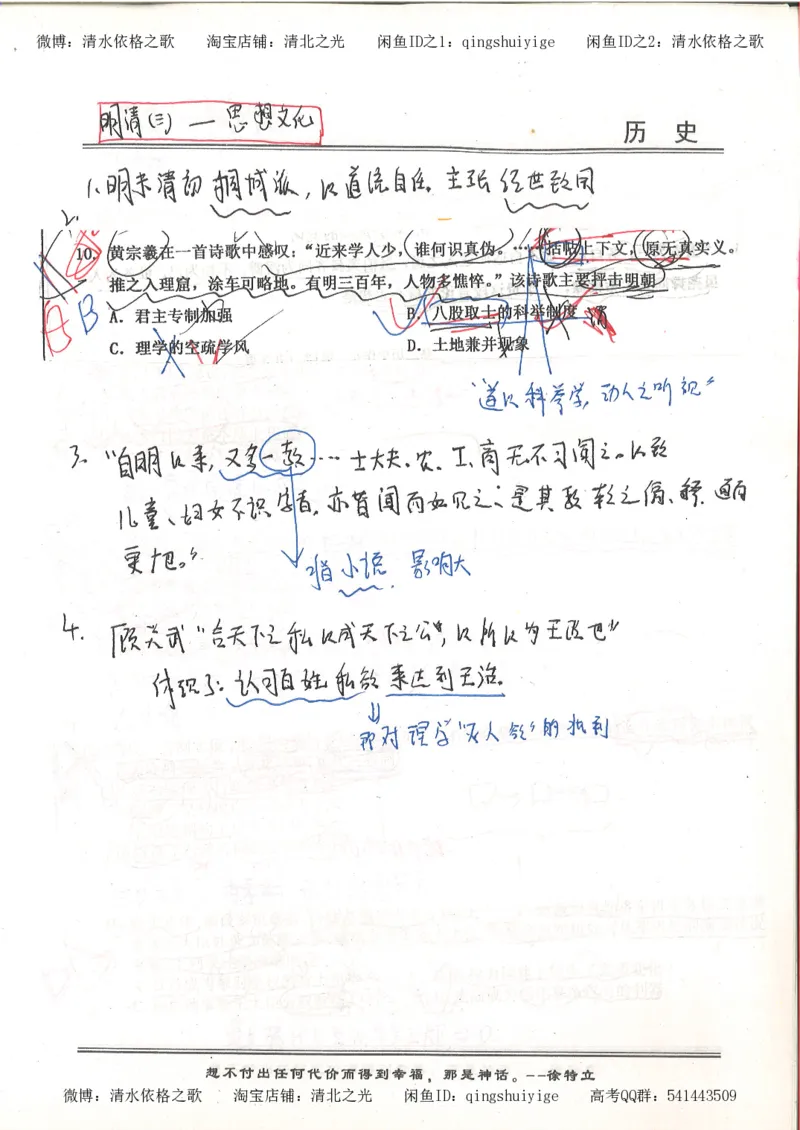 微博：清水依格之歌 淘宝店铺：清北之光 闲鱼ID之1：qingshuiyige 闲鱼ID之2：清水依格之歌
明清(三) — 思想文化
历 史
1.明末清初 桐城派，以道统自任. 主张 经世致用
2.
10. 黄宗羲在一首诗歌中感叹：“近来学人少，谁何识真伪。……括帖上下文，原无真实义。
推之入理窟，涂车可略地。有明三百年，人物多憔悴。”该诗歌主要抨击明朝
A B
A．君主专制加强 B．八股取士的科举制度
C．理学的空疏学风 D．土地兼并现象
“遂以科举学，动人之听视”
3. “自明以来，又多一教…… 士大夫、农、工、商无不习闻之。以致
儿童、妇女不识字者，亦皆闻而如见之；是其教较之儒、释、道而
更也。”
指 小说 影响大
4. 顾炎武“合天下之私以成天下之公，以所以为王政也”
体现了：认可百姓私欲来达到王治.
即对理学“灭人欲”的批判
想不付出任何代价而得到幸福，那是神话。--徐特立
微博：清水依格之歌 淘宝店铺：清北之光 闲鱼ID：qingshuiyige 高考QQ群：541443509